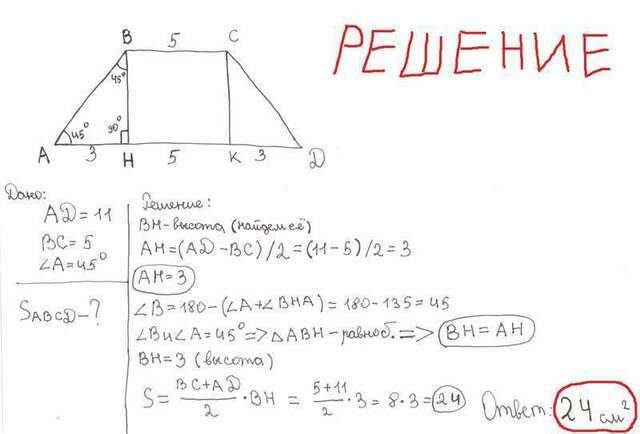 РЕШЕНИЕ
B 5 C
45°
45° 90°
A 3 H 5 K 3 D
Дано:
AD=11
BC=5
∠A=45°
SABCD-?
Решение:
BH-высота (найдем её)
AH=(AD-BC)/2=(11-5)/2=3
AH=3
∠B=180-(∠A+∠BHA)=180-135=45
∠B и ∠A=45°=>△ABH-равноб.=> BH=AH
BH=3 (высота)
S= BC+AD/2 ·BH = 5+11/2 ·3=8·3=24
Ответ: 24 см²